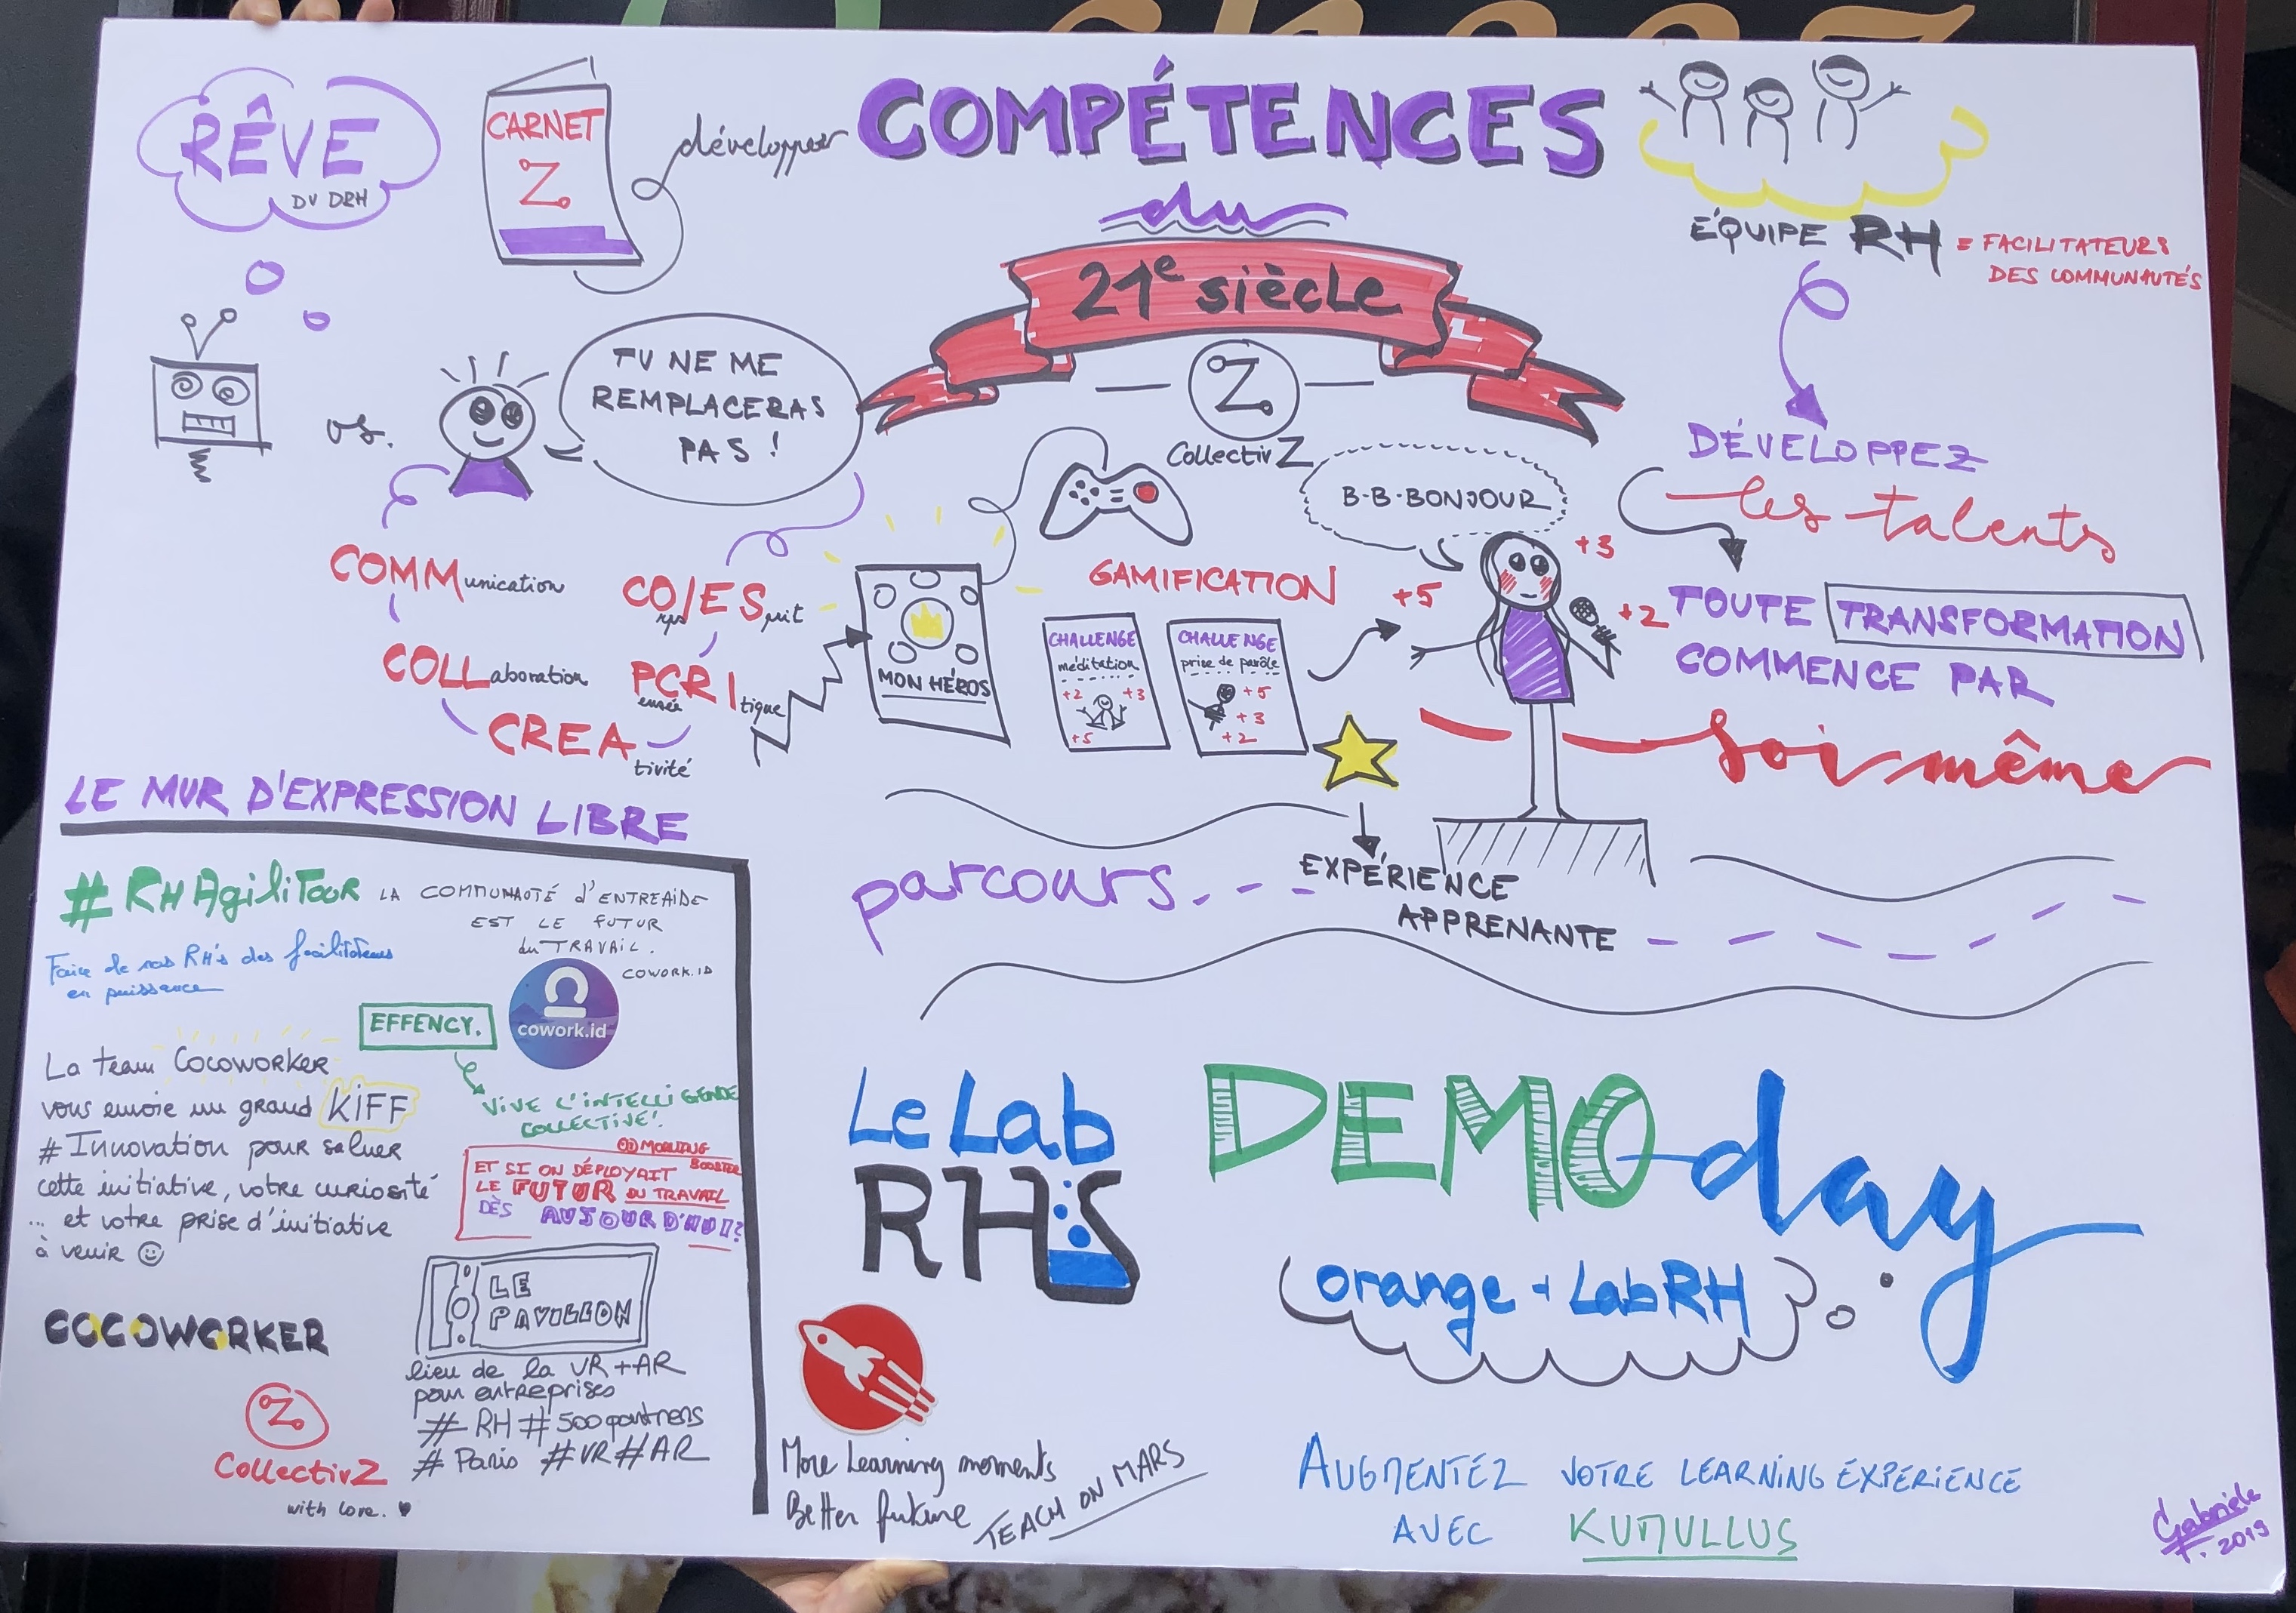 RÊVE
DU DRH
CARNET
Z
développer
COMPÉTENCES
du
21e siècle
Z
CollectivZ
ÉQUIPE RH = FACILITATEURS
DES COMMUNAUTÉS
vs.
TU NE ME
REMPLACERAS
PAS !
COMMunication
COLLaboration
CREAtivité
COrps/ESprit
PenséeCRItique
MON HÉROS
GAMIFICATION
CHALLENGE
méditation
+2 +3
+5
CHALLENGE
prise de parole
+5
+3
+2
B-B-BONJOUR
+3
+5
+2
DÉVELOPPEZ
les talents
TOUTE TRANSFORMATION
COMMENCE PAR
soi même
parcours
EXPÉRIENCE
APPRENANTE
LE MUR D'EXPRESSION LIBRE
#RHAgiliTour
LA COMMUNAUTÉ d'ENTREAIDE
EST LE FUTUR
du TRAVAIL.
COWORK.ID
cowork.id
Faire de nos RHs des facilitateurs
en puissance
EFFENCY.
VIVE L'INTELLIGENCE
COLLECTIVE!
La team Cocoworker
vous envoie un grand KIFF
# Innovation pour saluer
cette initiative, votre curiosité
... et votre prise d'initiative
à venir
BOOSTER
ET SI ON DÉPLOYAIT
LE FUTUR DU TRAVAIL
DÈS AUJOURD'HUI?
COCOWORKER
LE
PAVILLON
lieu de la VR+AR
pour entreprises
# RH #500
# Paris #VR #AR
Z
CollectivZ
with love.
Le Lab
RH
DEMO day
orange + LabRH
More Learning moments
Better future TEACH ON MARS
AUGMENTEZ VOTRE LEARNING EXPÉRIENCE
AVEC KUMULLUS
Gabriele
F. 2019